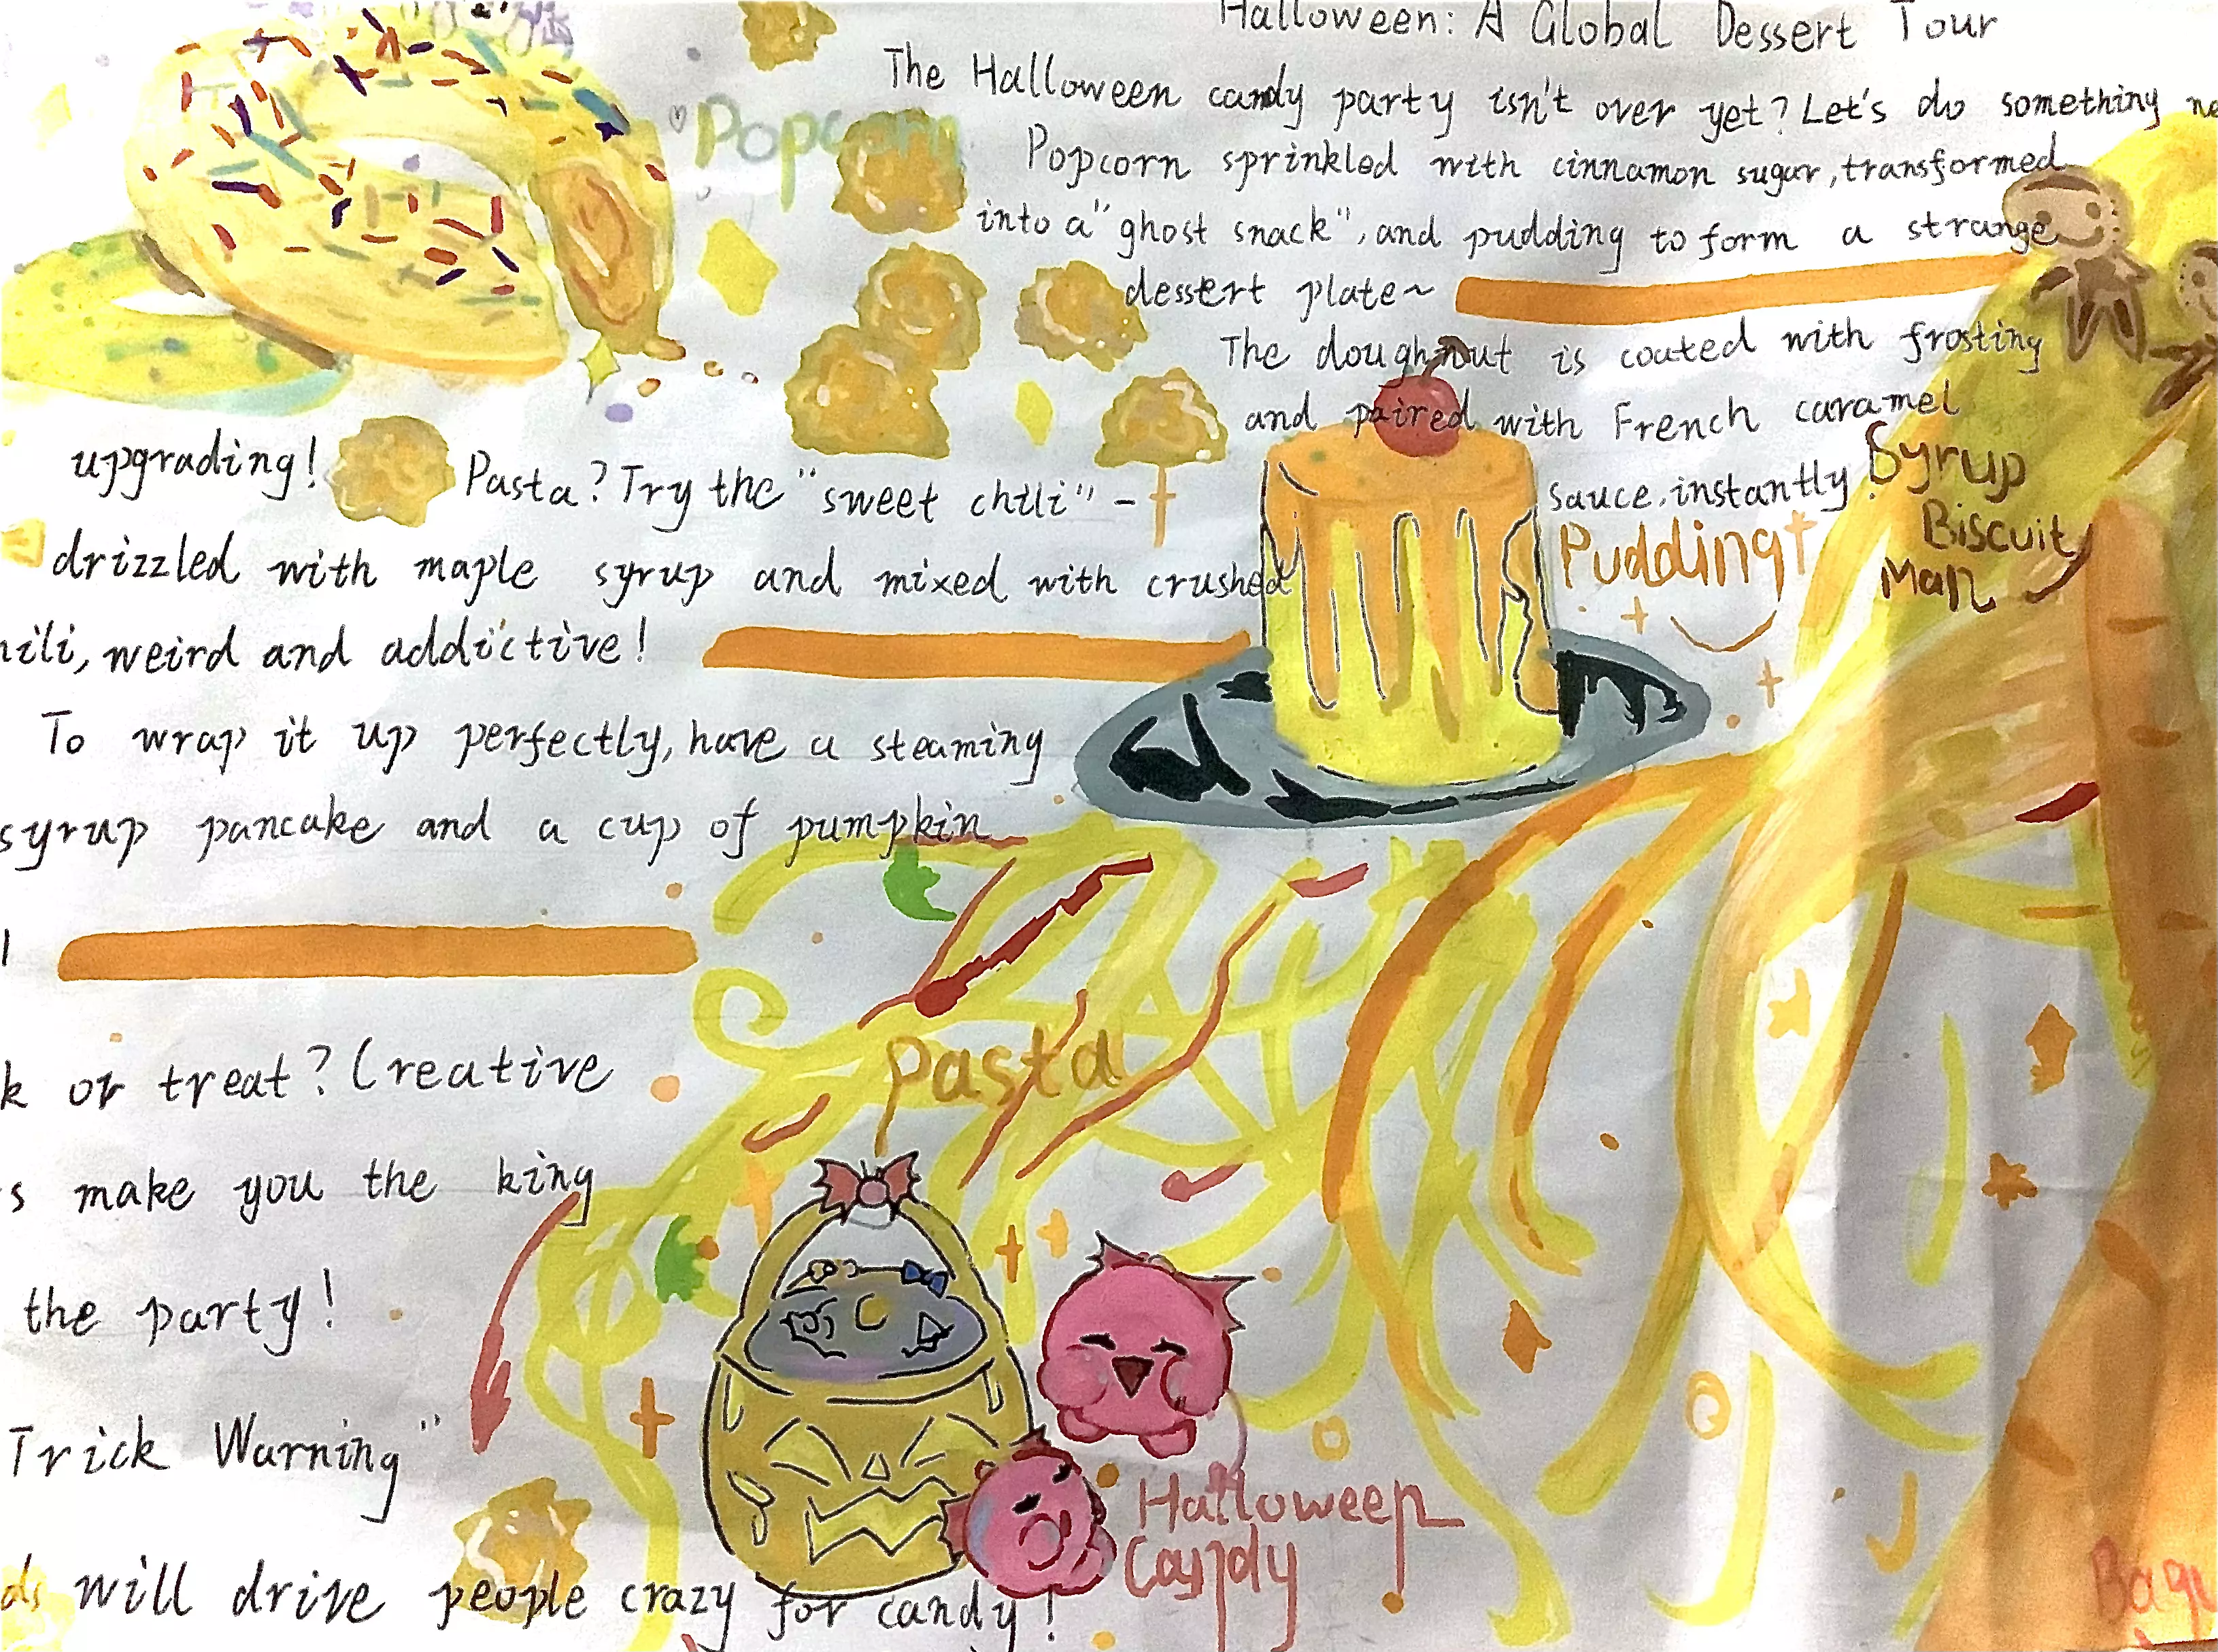 Halloween: A Global Dessert Tour
The Halloween candy party isn't over yet? Let's do something
Popcorn
Popcorn sprinkled with cinnamon sugar, transformed
into a "ghost snack", and pudding to form a strange
dessert plate~
The doughnut is coated with frosting
and paired with French caramel
sauce, instantly
upgrading!
Pasta? Try the "sweet chili" -
drizzled with maple syrup and mixed with crushed
weird and addictive!
To wrap it up perfectly, have a steaming
syrup pancake and a cup of pumpkin
or treat? Creative
make you the king
the party!
Trick Warning"
will drive people crazy for candy!
Pudding
Syrup
Biscuit
Man
Pasta
Halloween
Candy